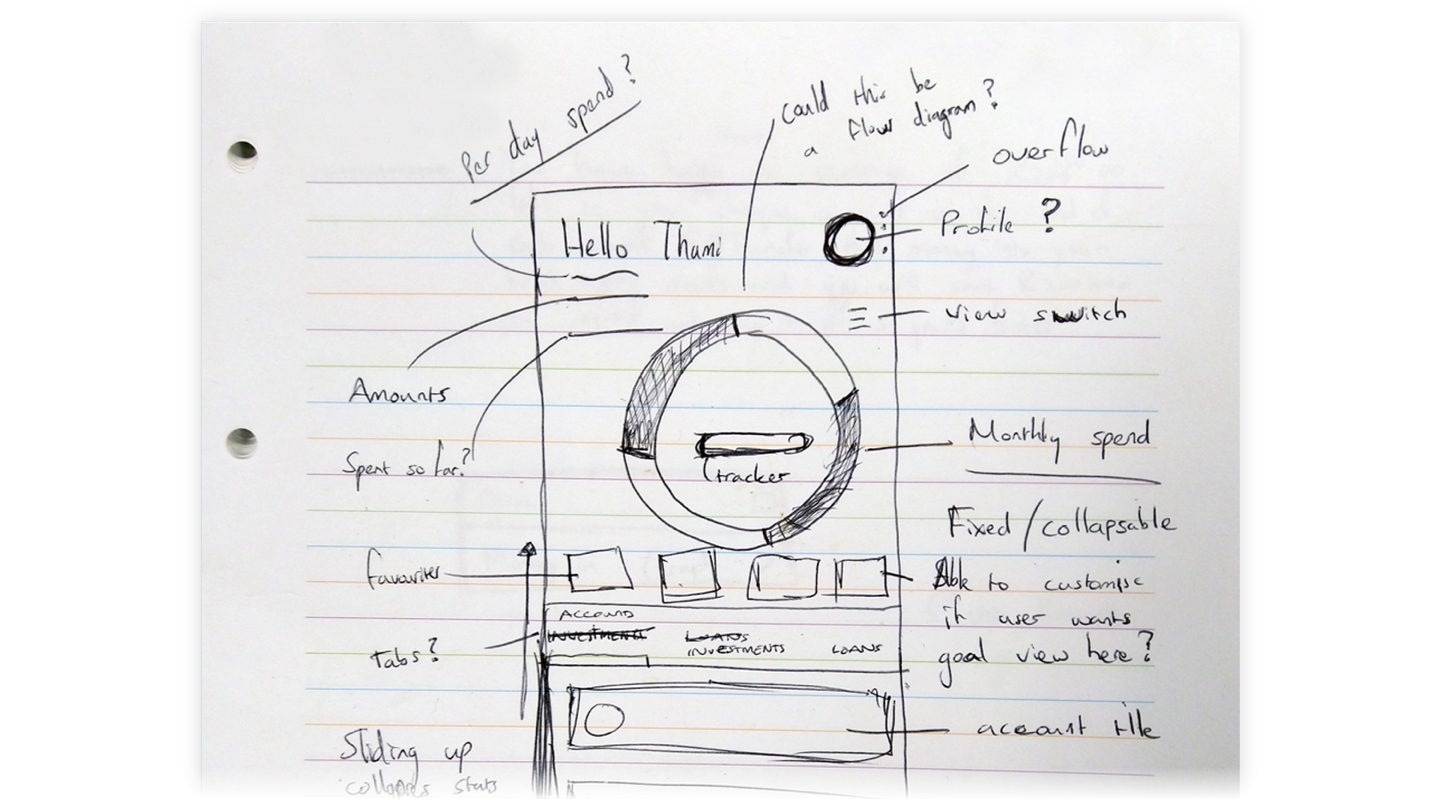 Per day spend?
could this be
a flow diagram?
overflow
Hello Thami
Profile ?
view switch
Amounts
Monthly spend
Spent so far?
tracker
Fixed/collapsable
favourites
Able to customise
if user wants
goal view here?
ACCOUNTS
INVESTMENTS
LOANS
INVESTMENTS
LOANS
tabs?
account title
Sliding up
collapses stats